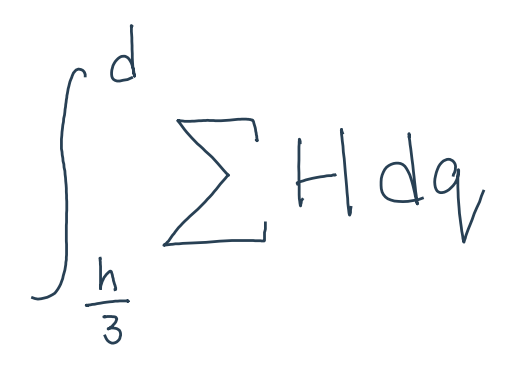 \int_{\frac{h}{3}}^{d} \sum H dq